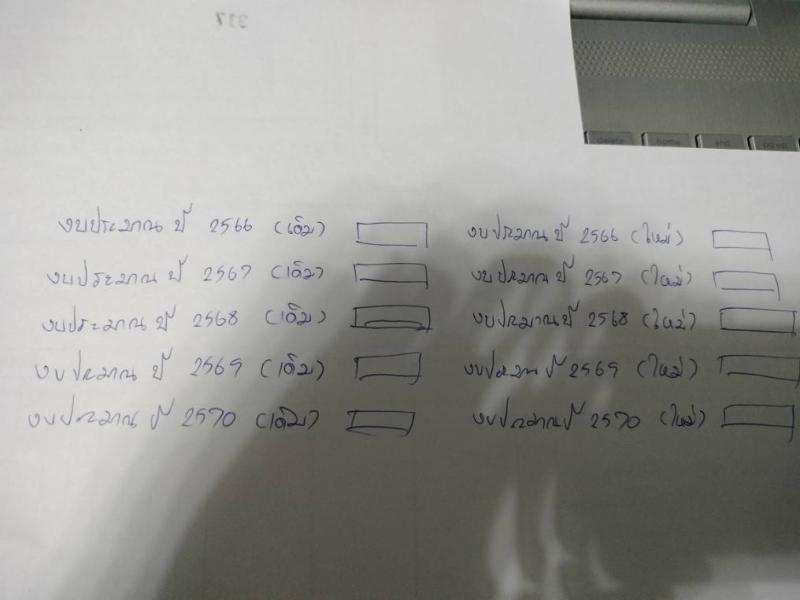 317
delete home end pg up
งบประมาณ ปี 2566 (เดิม) งบประมาณ ปี 2566 (ใหม่)
งบประมาณ ปี 2567 (เดิม) งบประมาณ ปี 2567 (ใหม่)
งบประมาณ ปี 2568 (เดิม) งบประมาณ ปี 2568 (ใหม่)
งบประมาณ ปี 2569 (เดิม) งบประมาณ ปี 2569 (ใหม่)
งบประมาณ ปี 2570 (เดิม) งบประมาณ ปี 2570 (ใหม่)